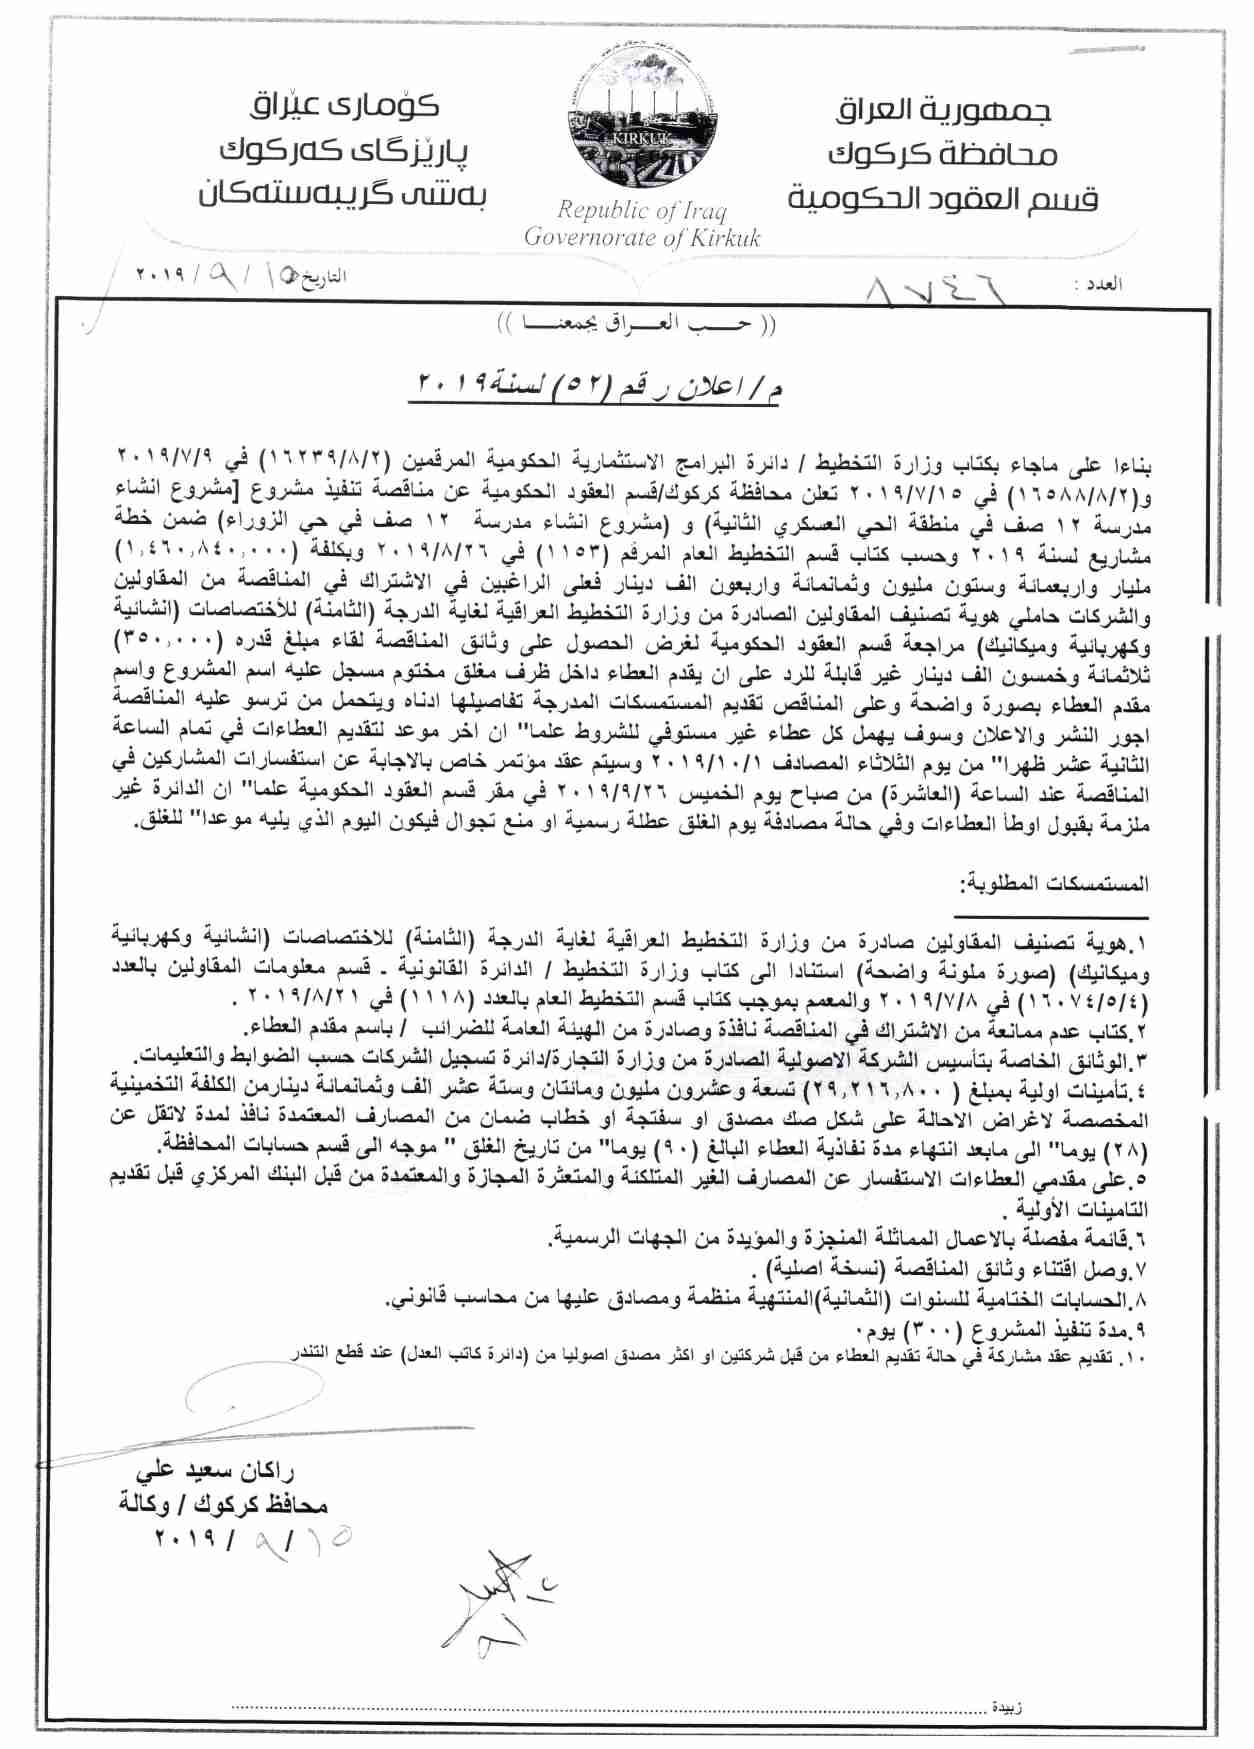 جمهورية العراق
محافظة كركوك
قسم العقود الحكومية
KIRKUK
Republic of Iraq
Governorate of Kirkuk
كۆماری عێراق
پارێزگای کەرکوک
بەشی گرێبەستەکان
العدد : ٨٧٤٦
التاريخ ١٥ / ٩ / ٢٠١٩
(( حـــب العـــراق يجمعنـــا ))
م / اعلان رقم (٥٢) لسنة ٢٠١٩
بناءا على ماجاء بكتاب وزارة التخطيط / دائرة البرامج الاستثمارية الحكومية المرقمين (١٦٢٣٩/٨/٢) في ٢٠١٩/٧/٩
و(١٦٥٨٨/٨/٢) في ٢٠١٩/٧/١٥ تعلن محافظة كركوك/قسم العقود الحكومية عن مناقصة تنفيذ مشروع [مشروع انشاء
مدرسة ١٢ صف في منطقة الحي العسكري الثانية) و (مشروع انشاء مدرسة ١٢ صف في حي الزوراء) ضمن خطة
مشاريع لسنة ٢٠١٩ وحسب كتاب قسم التخطيط العام المرقم (١١٥٣) في ٢٠١٩/٨/٢٦ وبكلفة (١,٤٦٠,٨٤٠,٠٠٠)
مليار واربعمائة وستون مليون وثمانمائة واربعون الف دينار فعلى الراغبين في الاشتراك في المناقصة من المقاولين
والشركات حاملي هوية تصنيف المقاولين الصادرة من وزارة التخطيط العراقية لغاية الدرجة (الثامنة) للأختصاصات (انشائية
وكهربائية وميكانيك) مراجعة قسم العقود الحكومية لغرض الحصول على وثائق المناقصة لقاء مبلغ قدره (٣٥٠,٠٠٠)
ثلاثمائة وخمسون الف دينار غير قابلة للرد على ان يقدم العطاء داخل ظرف مغلق مختوم مسجل عليه اسم المشروع واسم
مقدم العطاء بصورة واضحة وعلى المناقص تقديم المستمسكات المدرجة تفاصيلها ادناه ويتحمل من ترسو عليه المناقصة
اجور النشر والاعلان وسوف يهمل كل عطاء غير مستوفي للشروط علما" ان اخر موعد لتقديم العطاءات في تمام الساعة
الثانية عشر ظهرا" من يوم الثلاثاء المصادف ٢٠١٩/١٠/١ وسيتم عقد مؤتمر خاص بالاجابة عن استفسارات المشاركين في
المناقصة عند الساعة (العاشرة) من صباح يوم الخميس ٢٠١٩/٩/٢٦ في مقر قسم العقود الحكومية علما" ان الدائرة غير
ملزمة بقبول اوطأ العطاءات وفي حالة مصادفة يوم الغلق عطلة رسمية او منع تجوال فيكون اليوم الذي يليه موعدا" للغلق.
المستمسكات المطلوبة:
١.هوية تصنيف المقاولين صادرة من وزارة التخطيط العراقية لغاية الدرجة (الثامنة) للاختصاصات (انشائية وكهربائية
وميكانيك) (صورة ملونة واضحة) استنادا الى كتاب وزارة التخطيط / الدائرة القانونية - قسم معلومات المقاولين بالعدد
(١٦٠٧٤/٥/٤) في ٢٠١٩/٧/٨ والمعمم بموجب كتاب قسم التخطيط العام بالعدد (١١١٨) في ٢٠١٩/٨/٢١ .
٢.كتاب عدم ممانعة من الاشتراك في المناقصة نافذة وصادرة من الهيئة العامة للضرائب / باسم مقدم العطاء.
٣.الوثائق الخاصة بتأسيس الشركة الاصولية الصادرة من وزارة التجارة/دائرة تسجيل الشركات حسب الضوابط والتعليمات.
٤.تأمينات اولية بمبلغ ( ٢٩,٢١٦,٨٠٠) تسعة وعشرون مليون ومائتان وستة عشر الف وثمانمائة دينارمن الكلفة التخمينية
المخصصة لاغراض الاحالة على شكل صك مصدق او سفتجة او خطاب ضمان من المصارف المعتمدة نافذ لمدة لاتقل عن
(٢٨) يوما" الى مابعد انتهاء مدة نفاذية العطاء البالغ (٩٠) يوما" من تاريخ الغلق " موجه الى قسم حسابات المحافظة.
٥.على مقدمي العطاءات الاستفسار عن المصارف الغير المتلكئة والمتعثرة المجازة والمعتمدة من قبل البنك المركزي قبل تقديم
التامينات الأولية .
٦.قائمة مفصلة بالاعمال المماثلة المنجزة والمؤيدة من الجهات الرسمية.
٧.وصل اقتناء وثائق المناقصة (نسخة اصلية) .
٨.الحسابات الختامية للسنوات (الثمانية)المنتهية منظمة ومصادق عليها من محاسب قانوني.
٩.مدة تنفيذ المشروع (٣٠٠) يوم٠
١٠. تقديم عقد مشاركة في حالة تقديم العطاء من قبل شركتين او اكثر مصدق اصوليا من (دائرة كاتب العدل) عند قطع التندر
راكان سعيد علي
محافظ كركوك / وكالة
١٥ / ٩ / ٢٠١٩
زبيدة